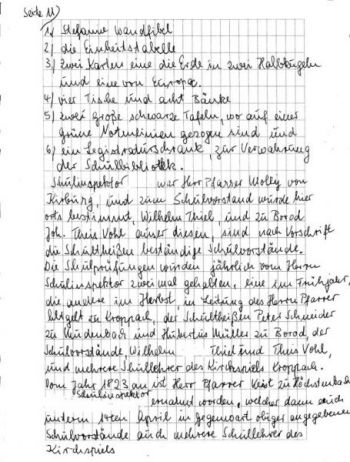 Seite 11)
1) Stefanie Wandfibel
2) die Einheitstabelle
3) zwei Karten eine die Erde in zwei Halbkugeln
und eine von Europa.
4) vier Tische und acht Bänke
5) zwei große schwarze Tafeln, wo auf einer
grüne Notenlinien gezogen sind und
6) ein Legistraturschrank, zur Verwahrung
der Schulbibliothek.
Schulinspektor war Herr Pfarrer Molly von
Kirburg, und zum Schulvorstand wurde hier
orts bestimmt, Wilhelm Thiel und zu Borod
Joh. Theis Vohl, außer diesen, sind nach Vorschrift
die Schultheißen beständige Schulvorstände.
Die Schulprüfungen wurden jährlich vom Herrn
Schulinspektor zweimal gehalten, eine im Frühjahr,
die andere im Herbst in Leitung des Herrn Pfarrer
zu Kroppach, der Schultheißen Peter Schneider
zu Mudenbach und Hubertus Müller zu Borod, der
Schulvorstände, Wilhelm Thiel und Theis Vohl,
und mehrere Schullehrer des Kirchspiels Kroppach.
Vom Jahr 1823 an ist Herr Pfarrer Keist zu Höchstenbach
Schulinspektor
ernannt worden, welcher dann auch
unterm 14ten April in Gegenwart obiger angegebenen
Schulvorstände auch mehrere Schullehrer des
Kirchspiels